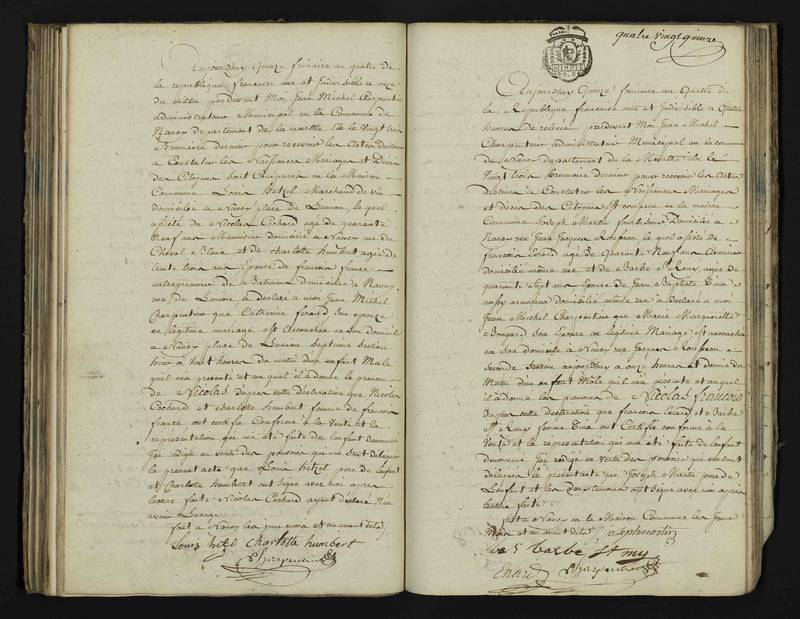 Aujourd'huy quinze frimaire an quatre de
la république française une et indivisible a onze
du matin pardevant Moi Jean Michel Charpentier
administrateur Municipal en la Commune de
Nancy département de la meurthe Elu le Vingt trois
Brumaire dernier pour recevoir les Actes destinés
a Constater les Naissances Mariages et Décès
des Citoyens Sont Comparus en la Maison
Commune Louis Hetzel Marchand de vin
domicilié a Nancy place de Lunion, lequel
assisté de Nicolas Cochard agé de quarante
Neuf ans Menuisier domicilié a Nancy rue du
Cheval Blanc et de charlotte humbert agée de
trente trois ans Epouse de francois france
entrepreneur de Batimens domiciliée a Nancy
rue de Lunion, a déclaré a moi Jean Michel
Charpentier que Catherine ferard son epouse
en légitime mariage est accouchée en son domicile
a Nancy place de Lunion Septieme Section
hier a huit heures du matin d'un enfant Male
quil ma présenté et au quel il a donné le prenom
de Nicolas d'après cette déclaration que Nicolas
Cochard et charlotte humbert femme de francois
france ont certifié Conforme à la Vérité et la
représentation qui ma été faite de lenfant dénommé
Jai rédigé en vertu des pouvoirs qui me sont délégués
le présent acte que Louis hetzel pere de lenfant
et Charlotte humbert ont signé avec moi après
lecture faite Nicolas Cochard ayant déclaré Ne
savoir
fait a Nancy les jour mois et an avant dits
Louis hetzel Charlotte humbert
Charpentier
quatre vingt quinze
Aujourd'huy Quinze frimaire an Quatre de
la République française une et indivisible a Quatre
heures de relevée pardevant Moi Jean Michel
Charpentier administrateur Municipal en la commune
de Nancy département de la Meurthe élu le
Vingt trois brumaire dernier pour recevoir les Actes
destinés a Constater les Naissances Mariages
et décès des Citoyens Est comparu en la maison
Commune Joseph Martin Domicilié a
Nancy rue Jean Jacques Rousseau lequel assisté de
francois agé de Quarante Neuf ans
domicilié même rue et de Barbe St Remy, agée de
quarante Sept ans épouse de Jean Baptiste
aussi domiciliée même rue a Déclaré a moi
Jean Michel Charpentier que Marie Marguerite
son Epouse en légitime Mariage est accouchée
en son domicile à Nancy rue Jacques Rousseau
Seconde Section aujourd'huy a onze heures et demie du
Matin d'un enfant Male quil ma présenté et auquel
il a donné les prénoms de Nicolas francois
Dapres cette déclaration que francois et Barbe
St Remy femme ont Certifié conforme à la
Verité et la représentation qui ma été faite de lenfant
dénommé Jai rédigé en vertu des pouvoirs qui me sont
délégués le présent acte que Joseph Martin pere de
Lenfant et les deux témoins ont signé avec moi après
lecture faite
fait a Nancy en la Maison Commune les Jour
Mois et an avant dits Joseph martin
barbe St
Charpentier